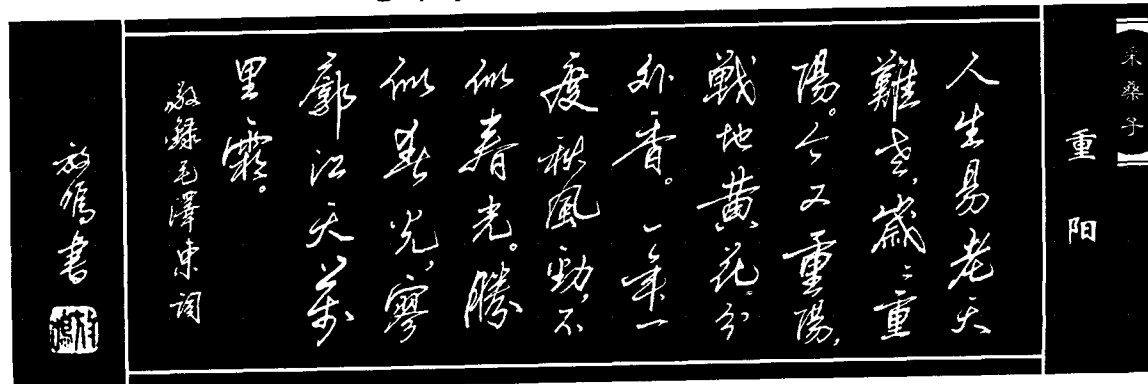 采桑子
重阳
人生易老天
難老,歲々重
陽。今又重陽,
戰地黄花分
外香。一年一
度秋風勁,不
似春光。勝
似春光,寥
廓江天萬
里霜。
敬錄毛澤東詞
放書